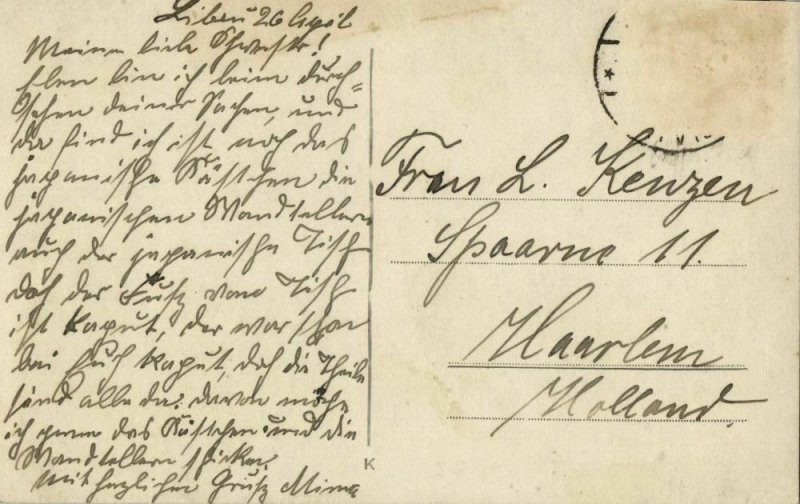 Libau 26 April
Meine liebe Schwester!
Eben bin ich beim durch-
sehen deiner Sachen, und
da find ich ist noch das
japanische Kästchen die
japanischen Wandtellern
auch der japanische Tisch
doch der Fusz vom Tisch
ist kaput, der war schon
bei Euch kaput, doch die Theile
sind alle da. davon möchte
ich gern das Kästchen und die
Wandtellern schicken.
Mit herzlichem Grusz Mima
K
Frau L. Kenzen
Spaarne 11.
Haarlem
Holland.